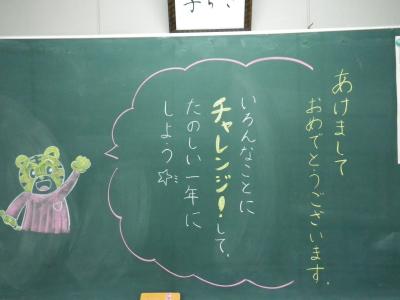 あけまして
おめでとうございます.
いろんなことに
チャレンジ!して、
たのしい一年に
しよう☆ミ